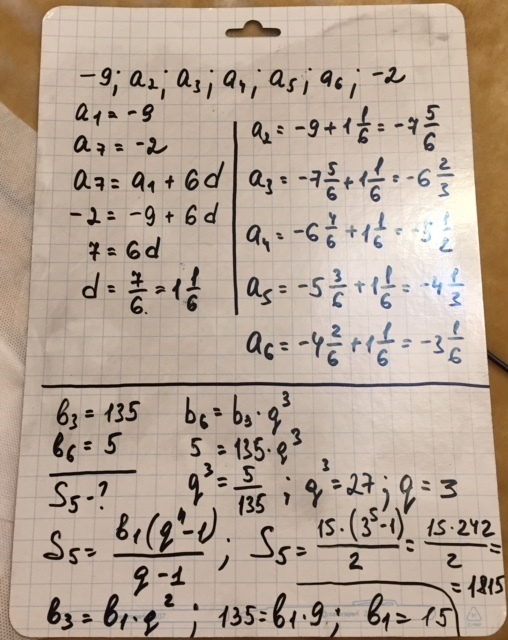 -9; a₂; a₃; a₄; a₅; a₆; -2
a₁ = -9
a₇ = -2
a₇ = a₁ + 6d
-2 = -9 + 6d
7 = 6d
d = 7/6 = 1 1/6
a₂ = -9 + 1 1/6 = -7 5/6
a₃ = -7 5/6 + 1 1/6 = -6 2/3
a₄ = -6 4/6 + 1 1/6 = -5 1/2
a₅ = -5 3/6 + 1 1/6 = -4 1/3
a₆ = -4 2/6 + 1 1/6 = -3 1/6
b₃ = 135
b₆ = 5
S₅ - ?
b₆ = b₃ · q³
5 = 135 · q³
q³ = 5/135 ; q³ = 27 ; q = 3
S₅ = b₁(qⁿ-1)/(q-1) ; S₅ = 15·(3⁵-1)/2 = 15·242/2 =
= 1815
b₃ = b₁ · q² ; 135 = b₁ · 9 ; b₁ = 15